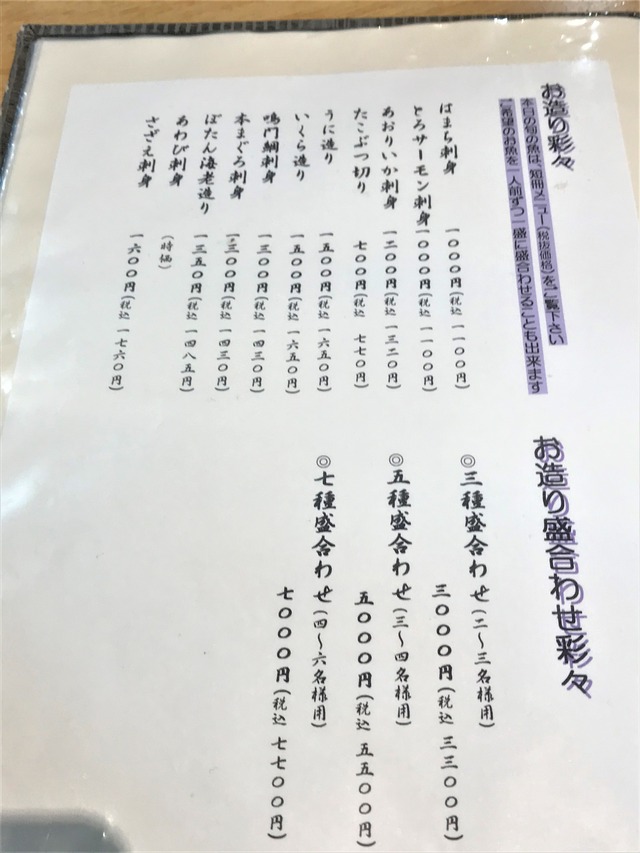 お造り彩々
本日の旬の魚は、短冊メニュー(税抜価格)をご覧下さい
ご希望のお魚を一人前ずつ一盛に盛合わせることも出来ます
はまち刺身 一〇〇〇円(税込 一一〇〇円)
とろサーモン刺身 一〇〇〇円(税込 一一〇〇円)
あおりいか刺身 一二〇〇円(税込 一三二〇円)
たこぶつ切り 七〇〇円(税込 七七〇円)
うに造り 一五〇〇円(税込 一六五〇円)
いくら造り 一五〇〇円(税込 一六五〇円)
鳴門鯛刺身 一三〇〇円(税込 一四三〇円)
本まぐろ刺身 一三〇〇円(税込 一四三〇円)
ぼたん海老造り 一三五〇円(税込 一四八五円)
あわび刺身 (時価)
さざえ刺身 一六〇〇円(税込 一七六〇円)
お造り盛合わせ彩々
◎三種盛合わせ(二〜三名様用)
三〇〇〇円(税込 三三〇〇円)
◎五種盛合わせ(三〜四名様用)
五〇〇〇円(税込 五五〇〇円)
◎七種盛合わせ(四〜六名様用)
七〇〇〇円(税込 七七〇〇円)